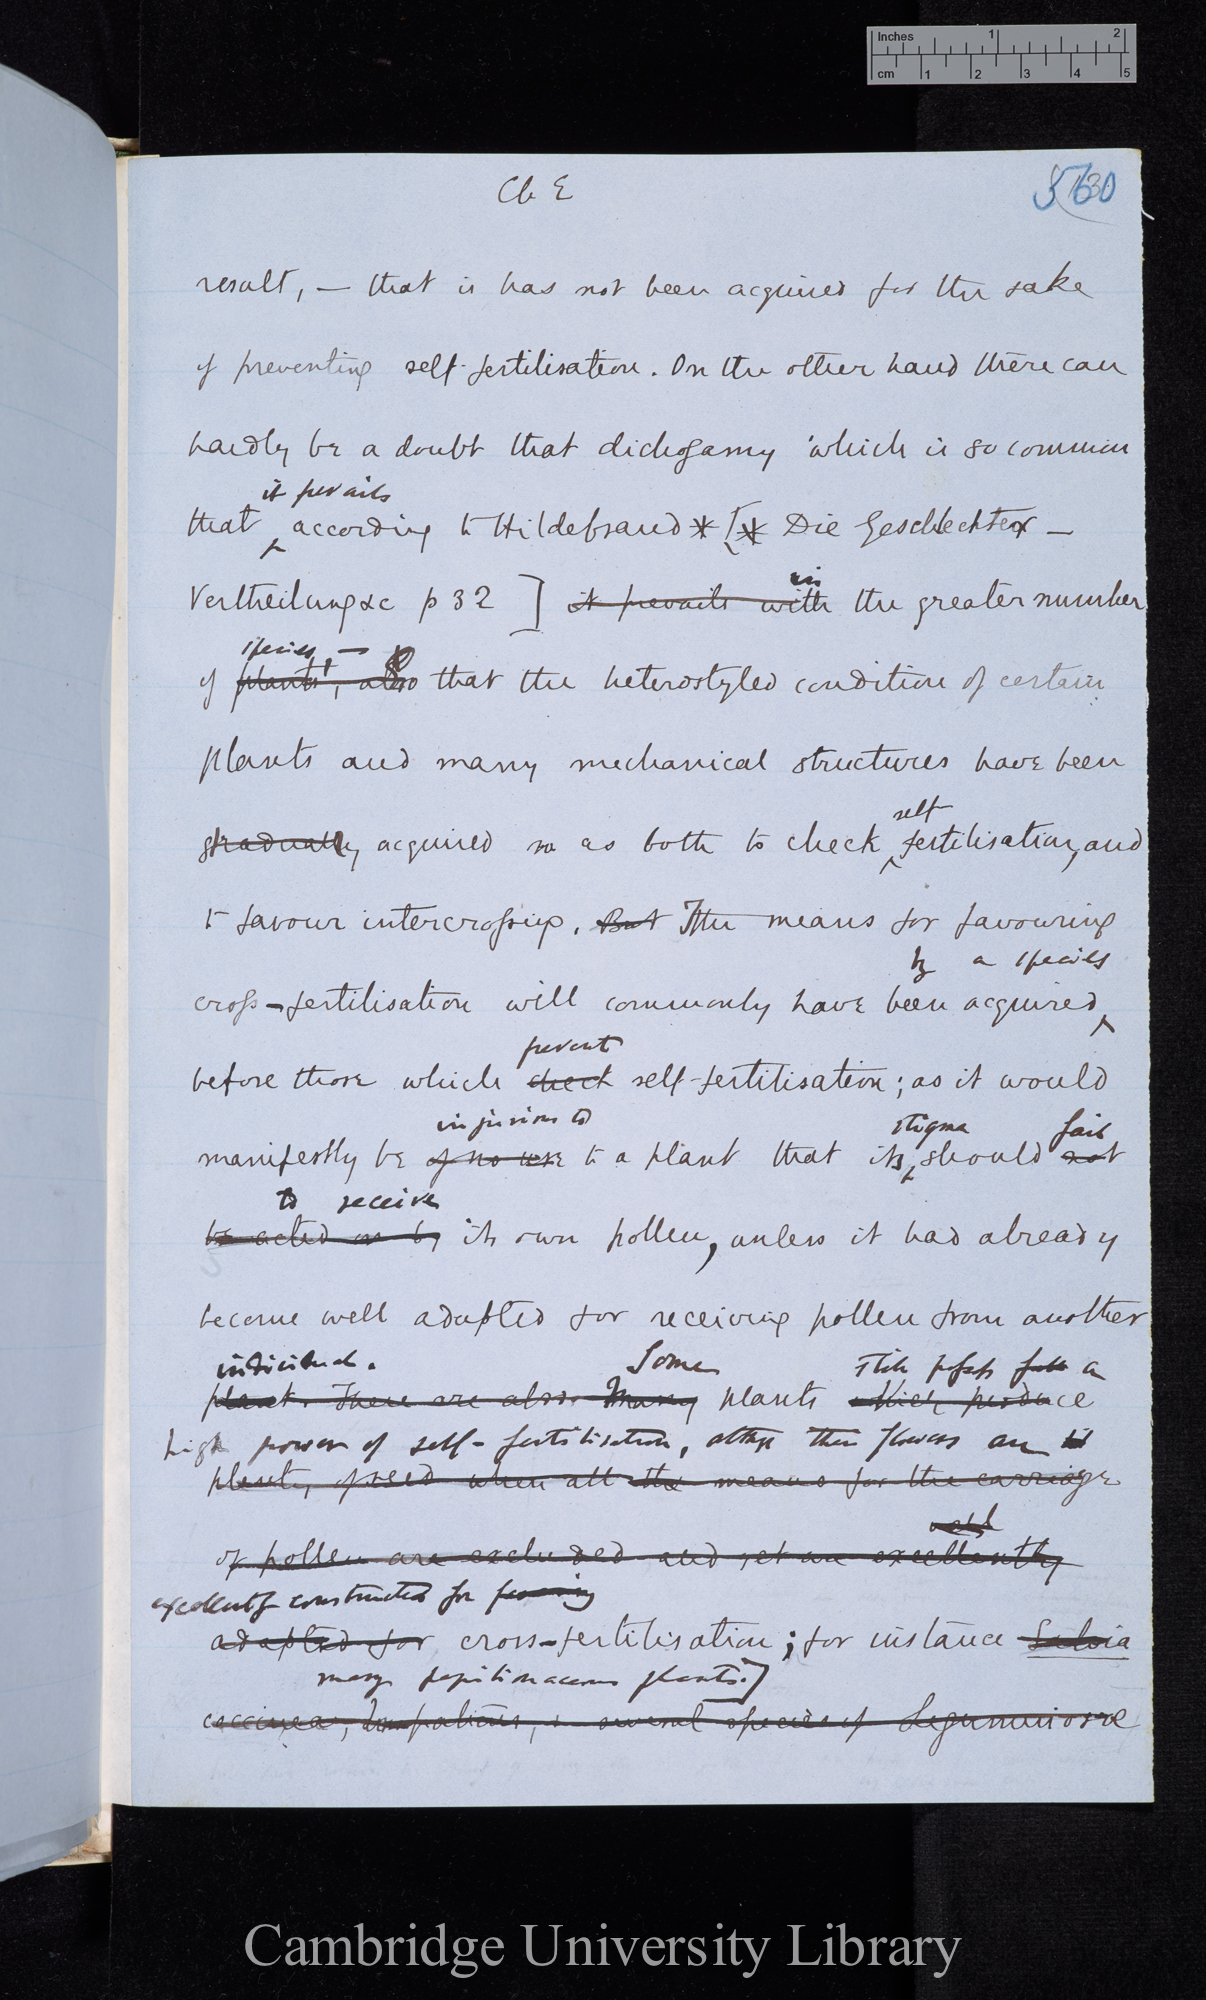 Inches 1 2
cm 1 2 3 4 5
Ch E
560
result, — that is has not been acquired for the sake
of preventing self-fertilisation. On the other hand there can
hardly be a doubt that dichogamy which is so common
it prevails
that according to Hildebrand * [* Die Geschlechter —
Vertheilung &c p 32 ] it prevails with in the greater number
species, —
of plants, also that the heterostyled condition of certain
plants and many mechanical structures have been
self
gradually acquired so as both to check fertilisation, and
to favour intercrossing. But The means for favouring
by a species
cross-fertilisation will commonly have been acquired
prevent
before those which check self-fertilisation; as it would
injurious to stigma fail
manifestly be of no use to a plant that its should not
to receive
be acted on by its own pollen, unless it had already
become well adapted for receiving pollen from another
individual. Some still possess a
plant. There are also Many plants which produce
high power of self-fertilisation, altho their flowers are
plenty of seed when all the means for the carriage
well
of pollen are excluded and yet are excellently
excellently constructed for favouring
adapted for cross-fertilisation; for instance Salvia
many papilionaceous plants.]
coccinea, Impatiens, & several species of Leguminosae
Cambridge University Library